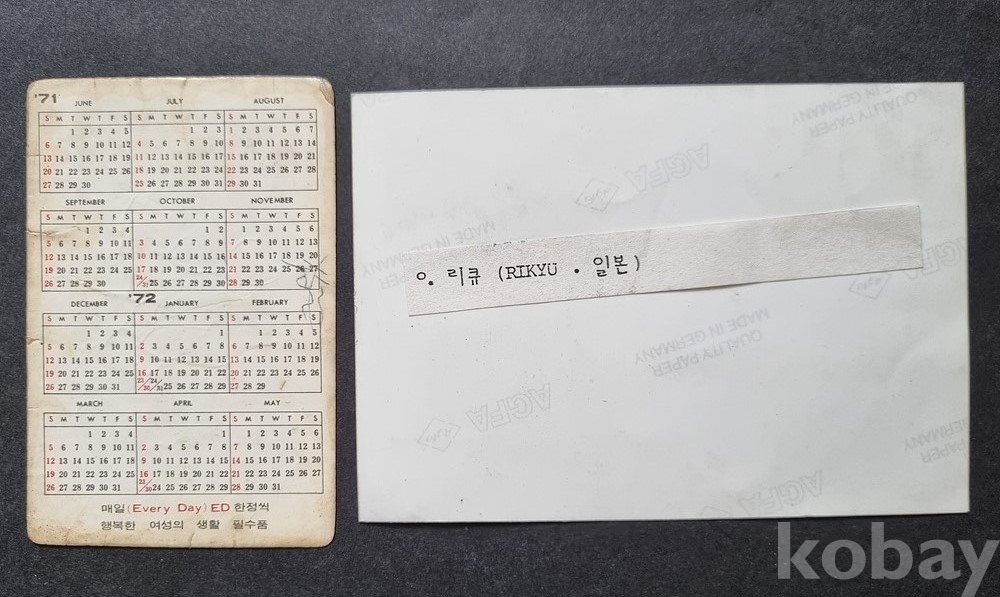 '71 JUNE JULY AUGUST
S M T W T F S S M T W T F S S M T W T F S
1 2 3 4 5 1 2 3 1 2 3 4 5 6 7
6 7 8 9 10 11 12 4 5 6 7 8 9 10 8 9 10 11 12 13 14
13 14 15 16 17 18 19 11 12 13 14 15 16 17 15 16 17 18 19 20 21
20 21 22 23 24 25 26 18 19 20 21 22 23 24 22 23 24 25 26 27 28
27 28 29 30 25 26 27 28 29 30 31 29 30 31
SEPTEMBER OCTOBER NOVEMBER
S M T W T F S S M T W T F S S M T W T F S
1 2 3 4 1 2 1 2 3 4 5 6
5 6 7 8 9 10 11 3 4 5 6 7 8 9 7 8 9 10 11 12 13
12 13 14 15 16 17 18 10 11 12 13 14 15 16 14 15 16 17 18 19 20
19 20 21 22 23 24 25 17 18 19 20 21 22 23 21 22 23 24 25 26 27
26 27 28 29 30 24/31 25 26 27 28 29 30 28 29 30
DECEMBER '72 JANUARY FEBRUARY
S M T W T F S S M T W T F S S M T W T F S
1 2 3 4 1 1 2 3 4 5
5 6 7 8 9 10 11 2 3 4 5 6 7 8 6 7 8 9 10 11 12
12 13 14 15 16 17 18 9 10 11 12 13 14 15 13 14 15 16 17 18 19
19 20 21 22 23 24 25 16 17 18 19 20 21 22 20 21 22 23 24 25 26
26 27 28 29 30 31 23/30 24/31 25 26 27 28 29 27 28 29
MARCH APRIL MAY
S M T W T F S S M T W T F S S M T W T F S
1 2 3 4 1 1 2 3 4 5 6
5 6 7 8 9 10 11 2 3 4 5 6 7 8 7 8 9 10 11 12 13
12 13 14 15 16 17 18 9 10 11 12 13 14 15 14 15 16 17 18 19 20
19 20 21 22 23 24 25 16 17 18 19 20 21 22 21 22 23 24 25 26 27
26 27 28 29 30 31 23/30 24 25 26 27 28 29 28 29 30 31
매일(Every Day) ED 한정씩
행복한 여성의 생활 필수품
AGFA
QUALITY PAPER
MADE IN GERMANY
ㅇ. 리큐 (RIKYU · 일본)
QUALITY PAPER
MADE IN GERMANY
AGFA
kobay